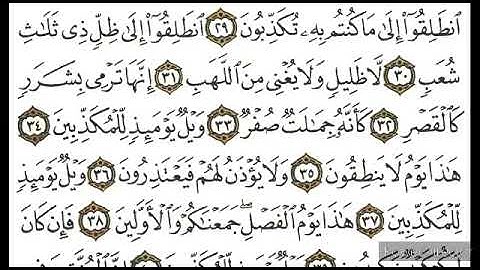 ٱنطَلِقُوٓا۟ إِلَىٰ مَا كُنتُم بِهِۦ تُكَذِّبُونَ ٢٩ ٱنطَلِقُوٓا۟ إِلَىٰ ظِلٍّ ذِى ثَلَٰثِ
شُعَبٍ ٣٠ لَّا ظَلِيلٍ وَلَا يُغْنِى مِنَ ٱللَّهَبِ ٣١ إِنَّهَا تَرْمِى بِشَرَرٍ
كَٱلْقَصْرِ ٣٢ كَأَنَّهُۥ جِمَٰلَتٌ صُفْرٌ ٣٣ وَيْلٌ يَوْمَئِذٍ لِّلْمُكَذِّبِينَ ٣٤
هَٰذَا يَوْمُ لَا يَنطِقُونَ ٣٥ وَلَا يُؤْذَنُ لَهُمْ فَيَعْتَذِرُونَ ٣٦ وَيْلٌ يَوْمَئِذٍ
لِّلْمُكَذِّبِينَ ٣٧ هَٰذَا يَوْمُ ٱلْفَصْلِ ۖ جَمَعْنَٰكُمْ وَٱلْأَوَّلِينَ ٣٨ فَإِن كَانَ